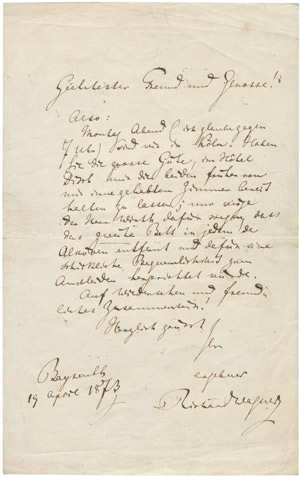 Geehrtester Freund und Genosse!
Also:
Montag Abend (ich glaube gegen
7 Uhr) sind wir in Köln. Haben
Sie die grosse Güte, im Hôtel
Disch mir die beiden früher von
mir innegehabten Zimmer bereit
halten zu lassen; nur möge
der Herr Wirth dafür sorgen, dass
das zweite Bett in jedem
Alkoven entfernt und dafür eine
schickliche Bequemlichkeit zum
Auskleiden hergerichtet wurde.
Auf Wiedersehen und freund-
liches Zusammensein!
Herzlich grüsst
Ihr
ergebener
Richard Wagner
Bayreuth
19 April 1873